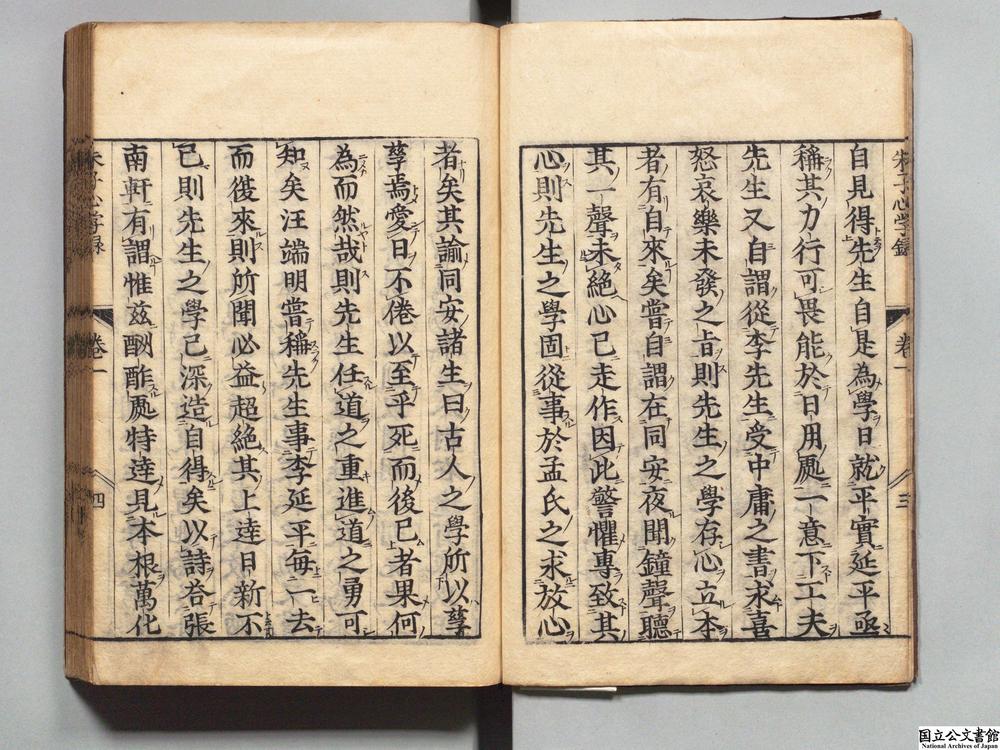 自見得先生自是為學日就平實延平亟
稱其力行可畏能於日用處一意下工夫
先生又自謂從李先生受中庸之書求喜
怒哀樂未發之旨則先生之學存心立本
者有自來矣嘗自謂在同安夜聞鐘聲聽
其一聲未絕心已走作因此警懼專致其
心則先生之學固從事於孟氏之求放心
者矣其諭同安諸生曰古人之學所以孳
孳焉愛日不倦以至乎死而後已者果何
為而然哉則先生任道之重進道之勇可
知矣汪端明嘗稱先生事李延平每一去
而復來則所聞必益超絕其上達日新不
已則先生之學已深造自得矣以詩荅張
南軒有謂惟茲酬酢處特達見本根萬化
朱子心學錄 卷一 三
卷一 四
国立公文書館
National Archives of Japan